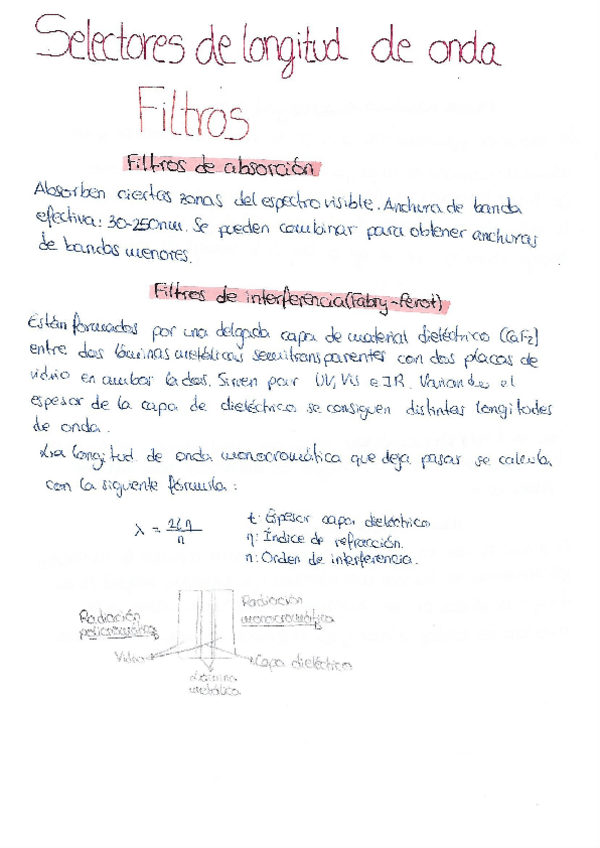 Selectores de longitud de onda
Filtros
Filtros de absorción
Absorben ciertas zonas del espectro visible. Anchura de banda
efectiva: 30-250nm. Se pueden combinar para obtener anchuras
de bandas menores.
Filtros de interferencia (Fabry-Perot)
Están formados por una delgada capa de material dieléctrico (CaF₂)
entre dos láminas metálicas semitransparentes con dos placas de
vidrio en ambos lados. Sirven para UV, Vis e IR. Variando el
espesor de la capa de dieléctrico se consiguen distintas longitudes
de onda.
La longitud de onda monocromática que deja pasar se calcula
con la siguiente fórmula:
λ = 2tη/n
t: Espesor capa dieléctrico
η: Índice de refracción.
n: Orden de interferencia.
Radiación
policromática
Radiación
monocromática
Vidrio
Capa dieléctrico
Lámina
metálica